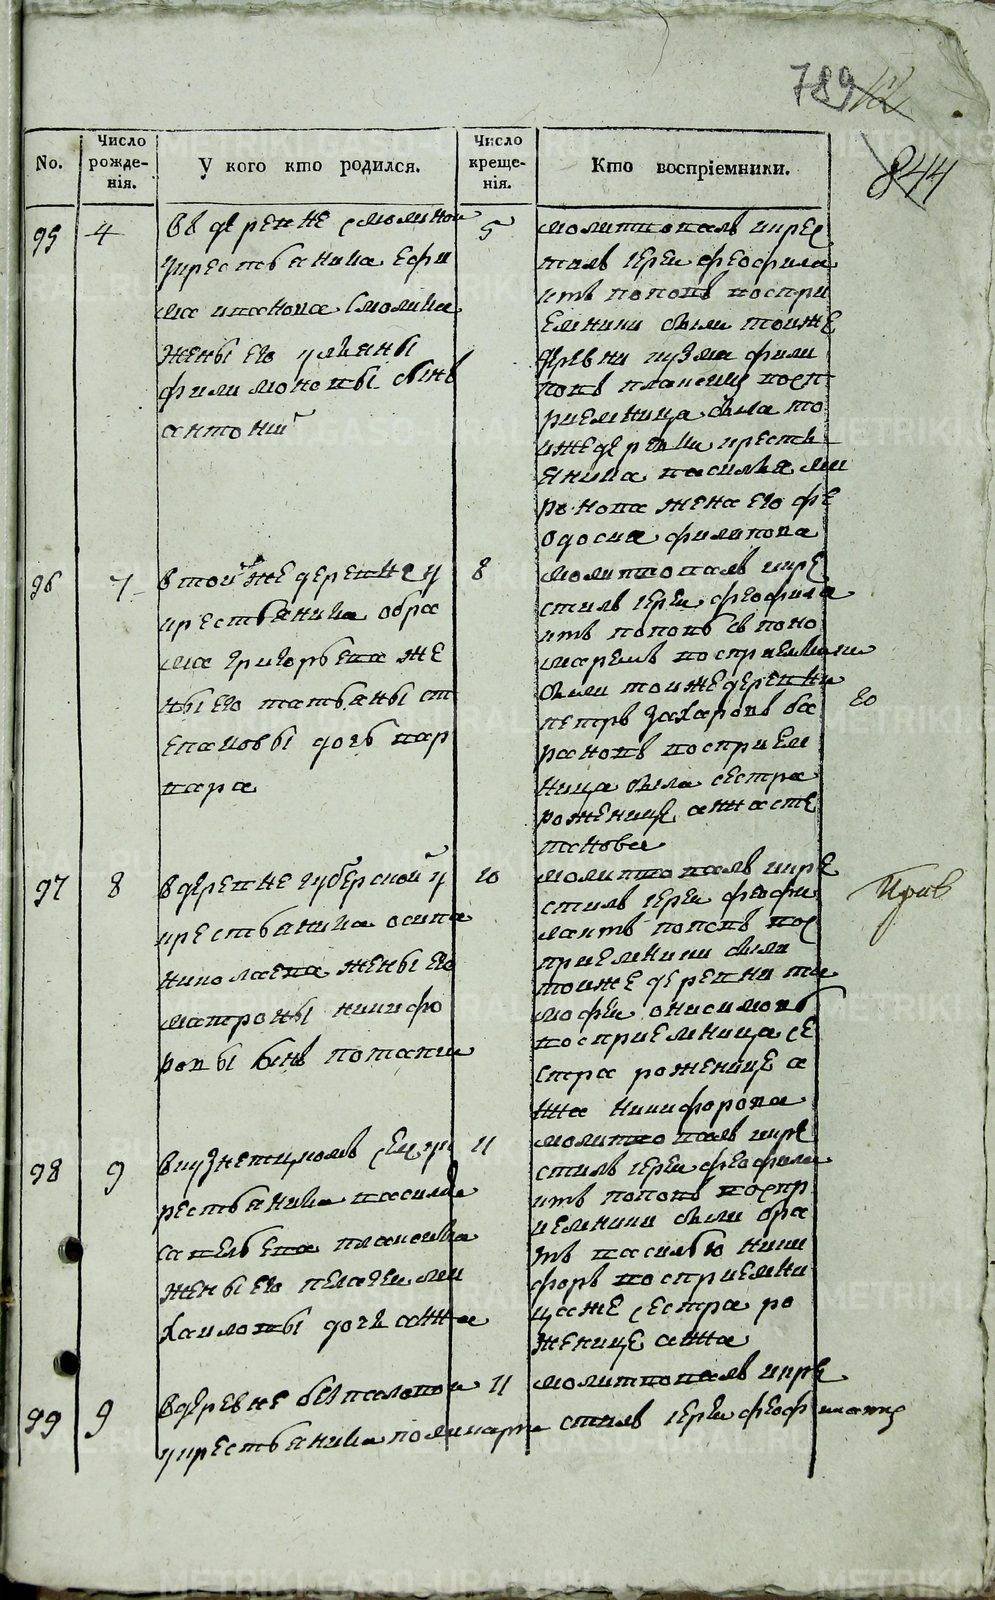 789
844
No.
Число рожде-нія.
У кого кто родился.
Число креще-нія.
Кто воспріемники.
95 4
въ деревне смолиной
укрестьянина ефи
ма иванова смолина
жены его ульяны
филимоновы сынъ
антоний
5
молитвовалъ икрес
тилъ иереи феофила
ктъ поповъ воспри
емники были тоиже
деревни кузма фили
повъ плаксинъ восп
риемница была то
ижедеревни кресть
янина василья ми
ронова жена его фе
одосиа филипова
96 7
втойже деревне у
крестьянина абра
ма григорьева же
ны его татьяны ст
епановы дочь вар
вара
8
молитвовалъ икре
стилъ иереи феофила
ктъ поповъ съ поно
маремъ восприемники
были тоижедеревни
петръ захаровъ ба
рановъ восприем
ница была сестра
роженице анна сте
панова
97 8
вдеревне губерской у
крестьянина осипа
николаева жены его
матроны никифо
ровы сынъ потапии
10
молитвовалъ икре
стилъ иереи феофи
лактъ поповъ вос
приемники были
тоиже деревни ти
мофеи онисимовъ
восприемница се
стра роженице а
нна никифорова
Ирив
98 9
вкузнецкомъ селе ук
рестьянина василья
савельева плаксина
жены его пелагеи ми
хаиловы дочь анна
11
молитвовалъ икре
стилъ иереи феофила
ктъ поповъ воспр
иемники были бра
тъ василью ники
форъ восприемни
цаже сестра ро
женице анна
99 9
вдеревне безпаловои
укрестьянина поликарпа
11
молитвовалъ икре
стилъ иереи феофилактъ